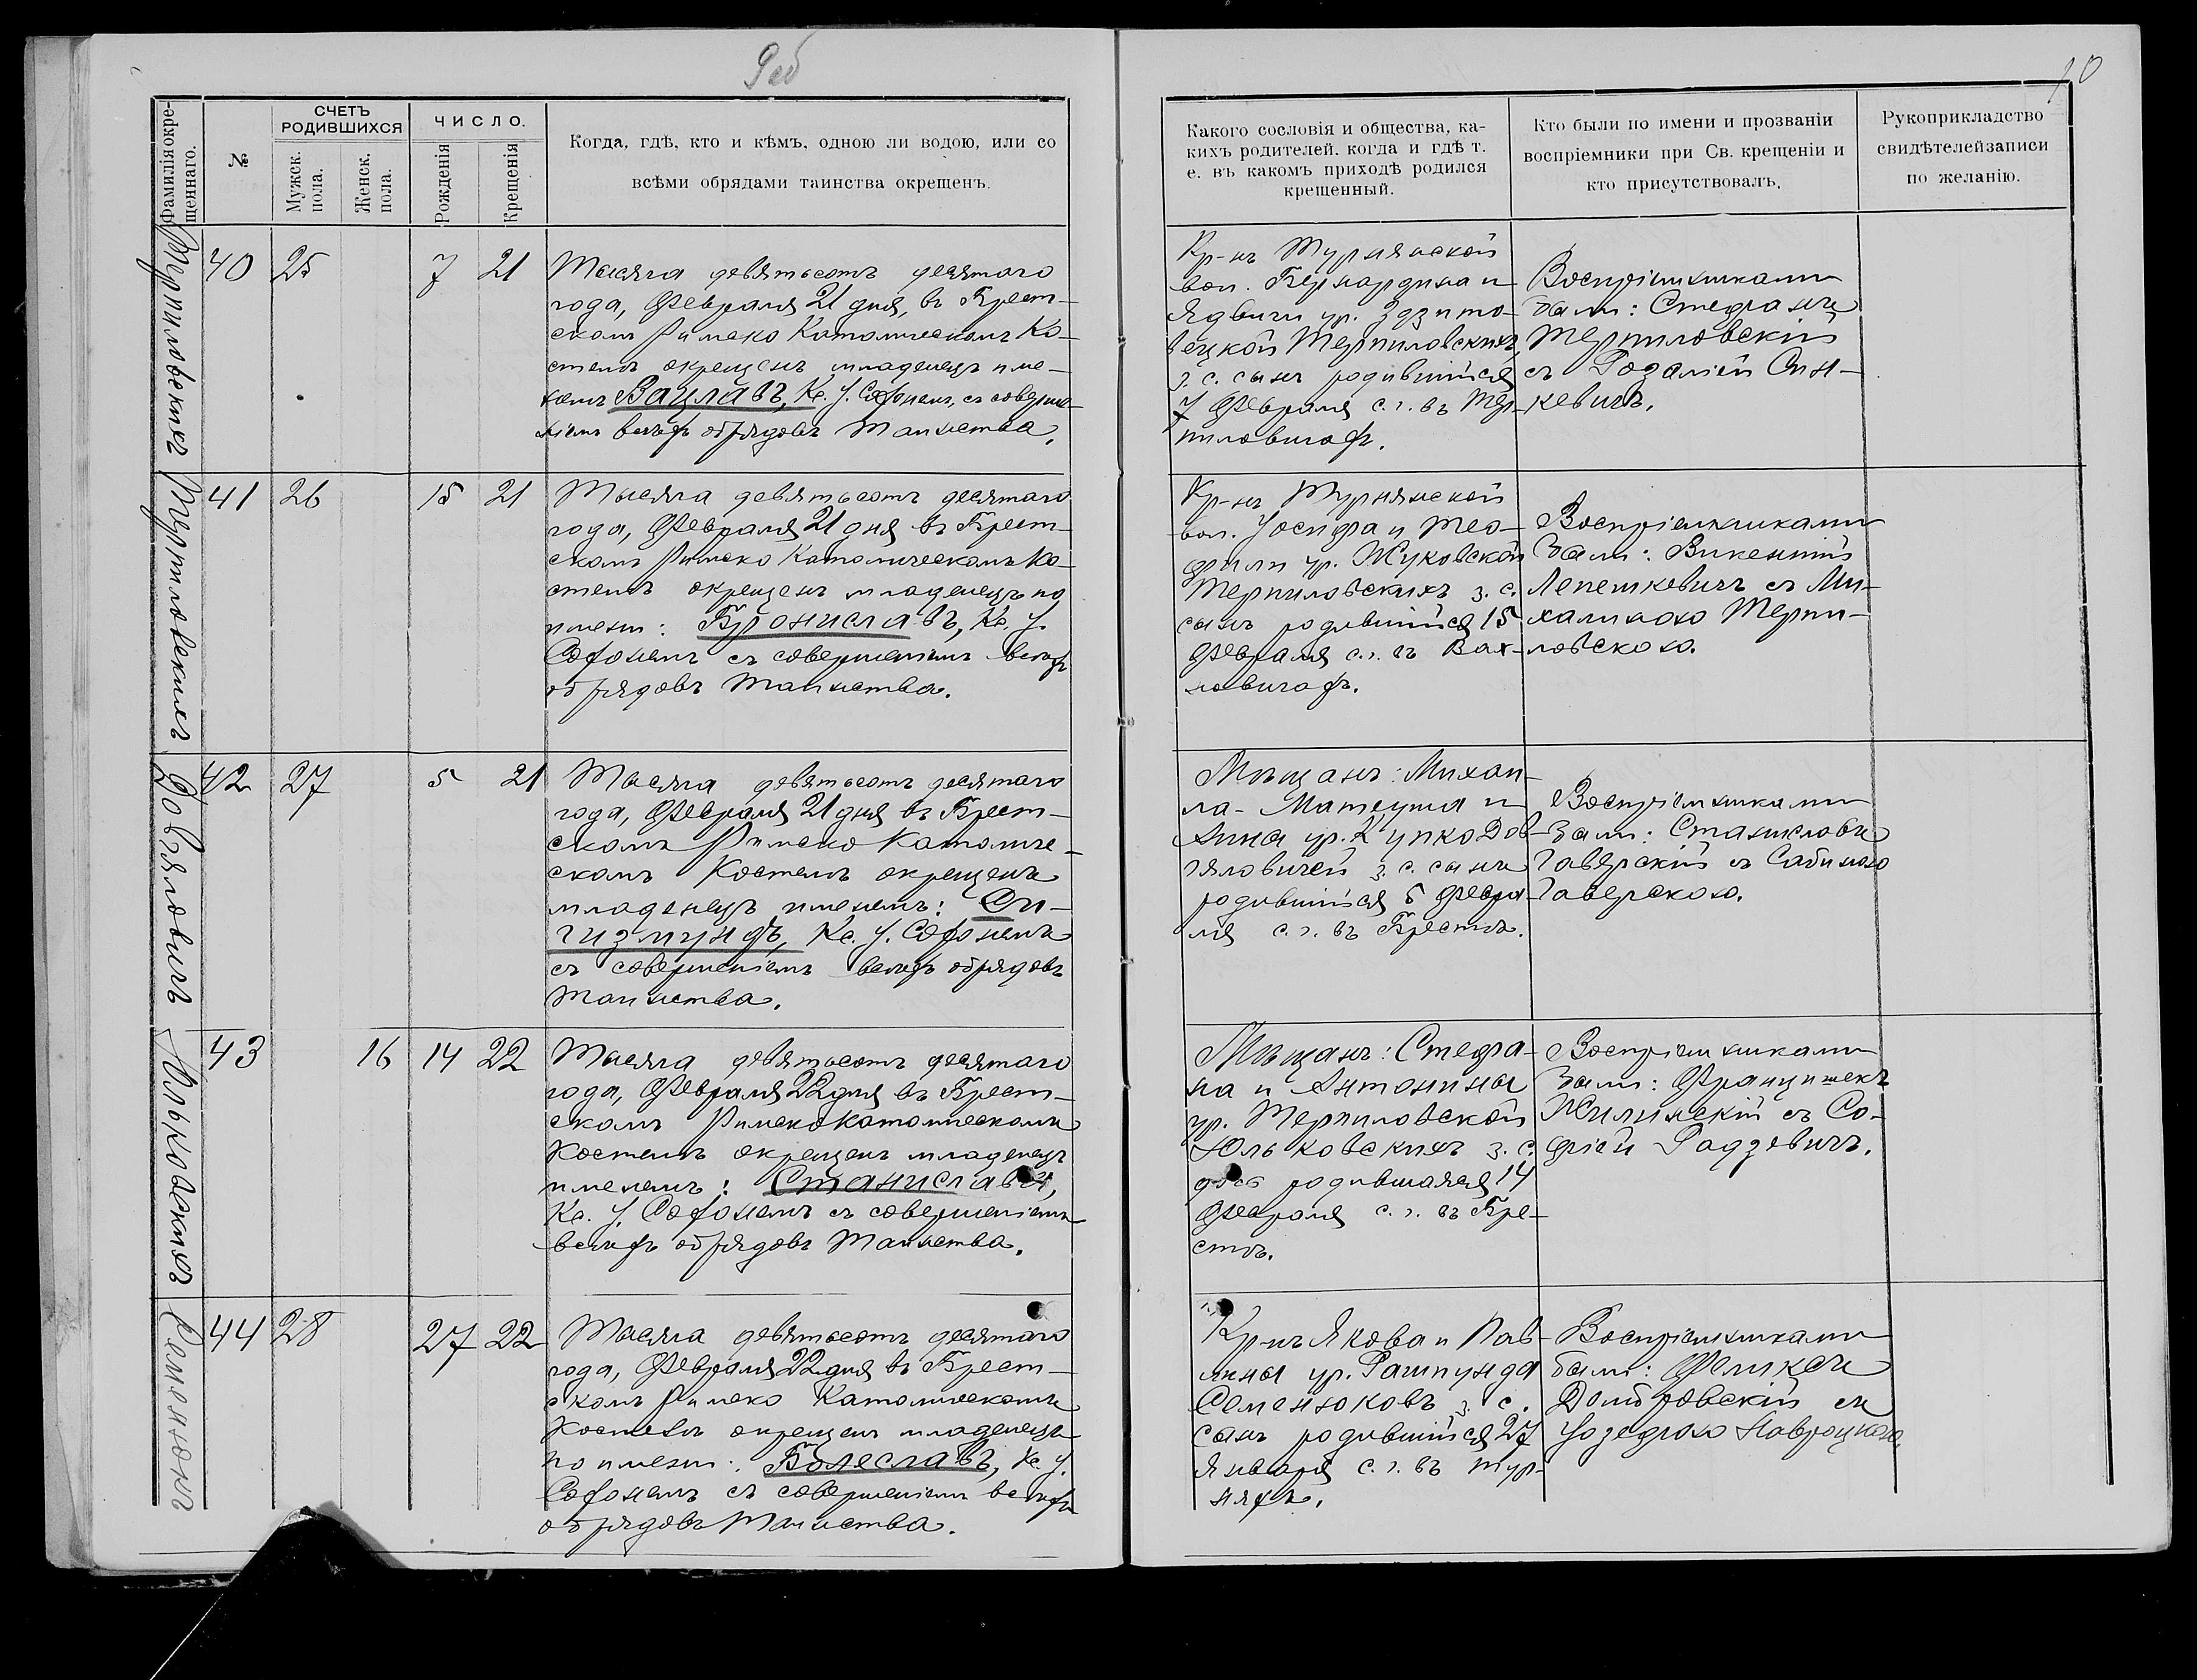 9об
10
Фамилія окре-
щеннаго.
№
СЧЕТЪ
РОДИВШИХСЯ
Мужск.
пола.
Женск.
пола.
ЧИСЛО.
Рожденія
Крещенія
Когда, гдѣ, кто и кѣмъ, одною ли водою, или со
всѣми обрядами таинства окрещенъ.
Какого сословія и общества, ка-
кихъ родителей, когда и гдѣ т.
е. въ какомъ приходѣ родился
крещенный.
Кто были по имени и прозванію
воспріемники при Св. крещеніи и
кто присутствовалъ.
Рукоприкладство
свидѣтелей записи
по желанію.
Терпиловскій
40 25 7 21
Тысяча девятьсотъ десятаго
года, Февраля 21 дня, въ Брест-
скомъ Римско Католическомъ Ко-
стелѣ окрещенъ младенецъ име-
немъ Вацлавъ, Кс. І. Софонемъ, съ соверше-
ніемъ всѣхъ обрядовъ Таинства.
Кр-нъ Турнянской
вол. Бернардина и
Ядвиги ур. Здзито-
вецкой Терпиловскихъ,
з. с. сынъ родившійся
7 Февраля с. г. въ Тер-
пиловичахъ.
Воспріемниками
были: Стефанъ
Терпиловскій
съ Розаліей Син-
кевичъ.
Терпиловскій
41 26 15 21
Тысяча девятьсотъ десятаго
года, Февраля 21 дня въ Брест-
скомъ Римско Католическомъ Ко-
стелѣ окрещенъ младенецъ по
имени: Брониславъ, Кс. І.
Софонемъ съ совершеніемъ всѣхъ
обрядовъ Таинства.
Кр-нъ Турнянской
вол. Іосифа и Тео-
фили ур. Жуковской
Терпиловскихъ з. с.
сынъ родившійся 15
Февраля с. г. въ Вах-
новичахъ.
Воспріемниками
были: Викентій
Лепешковичъ съ Ми-
халиною Терпи-
ловскою.
Довгяловичъ
42 27 5 21
Тысяча девятьсотъ десятаго
года, Февраля 21 дня въ Брест-
скомъ Римско Католиче-
скомъ Костелѣ окрещенъ
младенецъ именемъ: Си-
гизмундъ, Кс. І. Софонемъ
съ совершеніемъ всѣхъ обрядовъ
Таинства.
Мѣщанъ: Михаи-
ла-Матеуша и
Анны ур. Купко Дов-
гяловичей з. с. сынъ
родившійся 5 Февра-
ля с. г. въ Брестѣ.
Воспріемниками
были: Станиславъ
Гаверскій съ Сабиною
Гаверскою.
Юльковскихъ
43 16 14 22
Тысяча девятьсотъ десятаго
года, Февраля 22 дня въ Брест-
скомъ Римско Католическомъ
Костелѣ окрещенъ младенецъ
именемъ: Станислава,
Кс. І. Софонемъ съ совершеніемъ
всѣхъ обрядовъ Таинства.
Мѣщанъ: Стефа-
на и Антонины
ур. Терпиловской
Юльковскихъ з. с.
дочь родившаяся 14
Февраля с. г. въ Бре-
стѣ.
Воспріемниками
были: Францишекъ
Жилинскій съ Со-
фіей Радзевичъ.
Семенюкъ
44 28 27 22
Тысяча девятьсотъ десятаго
года, Февраля 22 дня въ Брест-
скомъ Римско Католическомъ
Костелѣ окрещенъ младенецъ
по имени: Болеславъ, Кс. І.
Софонемъ съ совершеніемъ всѣхъ
обрядовъ Таинства.
Кр-нъ Якова и Пав-
лины ур. Рашпунда
Семенюковъ з. с.
сынъ родившійся 27
Января с. г. въ Тур-
няхъ.
Воспріемниками
были: Феликсъ
Домбровскій съ
Іозефою Навроцкою.